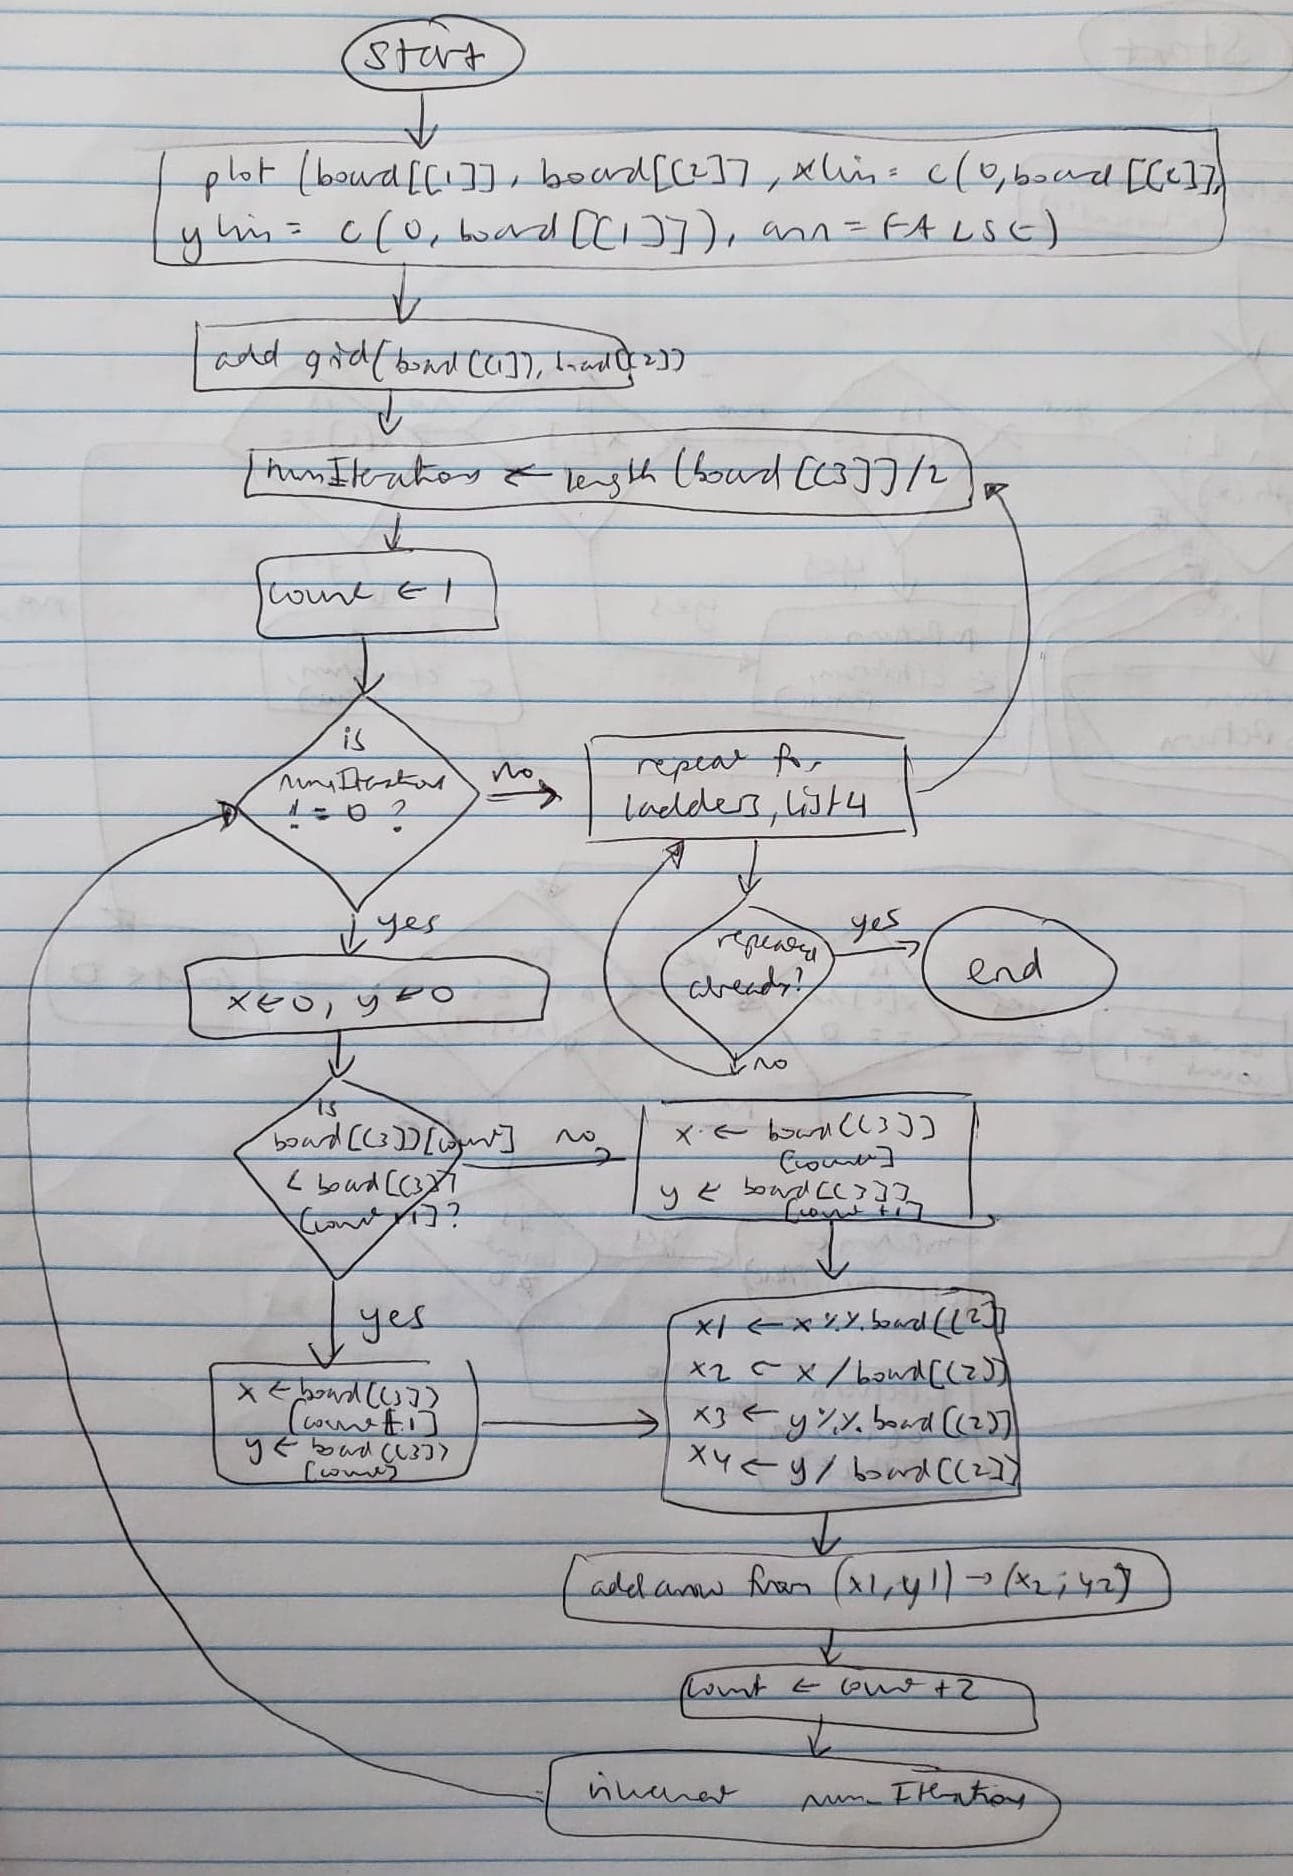 start
plot (board[[1]], board[[2]], xlim = c(0, board[[2]],
ylim = c(0, board[[1]]), ann = FALSE)
add grid(board[[1]], board[[2]])
numIterations ← length (board[[3]]/2
count ← 1
is
numIterations
!= 0 ?
no
repeat for
ladders, list 4
yes
repeated
already?
yes
end
no
x ← 0, y ← 0
is
board[[3]][count]
< board[[3]]
[count+1]?
no
x ← board[[3]]
[count]
y ← board[[3]]
[count+1]
yes
x ← board[[3]]
[count+1]
y ← board[[3]]
[count]
x1 ← x %% board[[2]]
x2 ← x / board[[2]]
x3 ← y %% board[[2]]
x4 ← y / board[[2]]
add arrow from (x1, y1) → (x2, y2)
count ← count + 2
num_Iterations